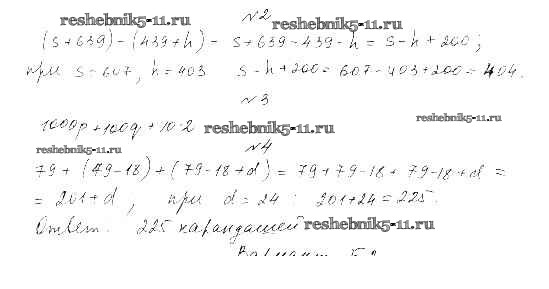 №2
reshebnik5-11.ru reshebnik5-11.ru
(s+639)-(439+h) = s+639-439-h = s-h+200;
при s=607, h=403 s-h+200=607-403+200=404.
№3
1000p+100q+10·2 reshebnik5-11.ru reshebnik5-11.ru
reshebnik5-11.ru №4
79+(79-18)+(79-18+d)=79+79-18+79-18+d=
=201+d, при d=24: 201+24=225.
Ответ. 225 карандашей reshebnik5-11.ru